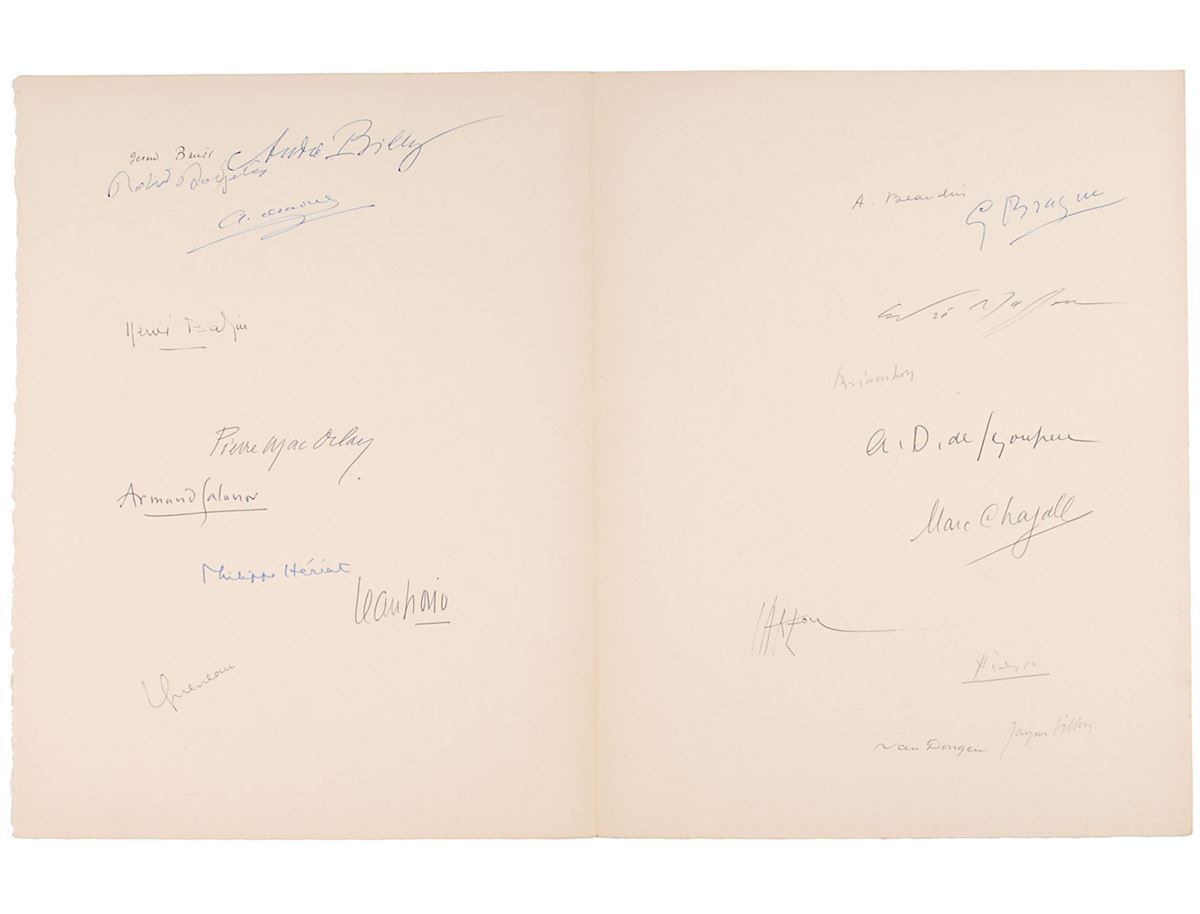 Gérard Bauër
André Billy
Roland Dorgelès
A. Arnoux
Hervé Bazin
Pierre Mac Orlan
Armand Salacrou
Philippe Hériat
Jean Giono
Queneau
A. Beaudin
G Braque
André Masson
Brianchon
A. D. de Segonzac
Marc Chagall
Picasso
Van Dongen
Jacques Villon